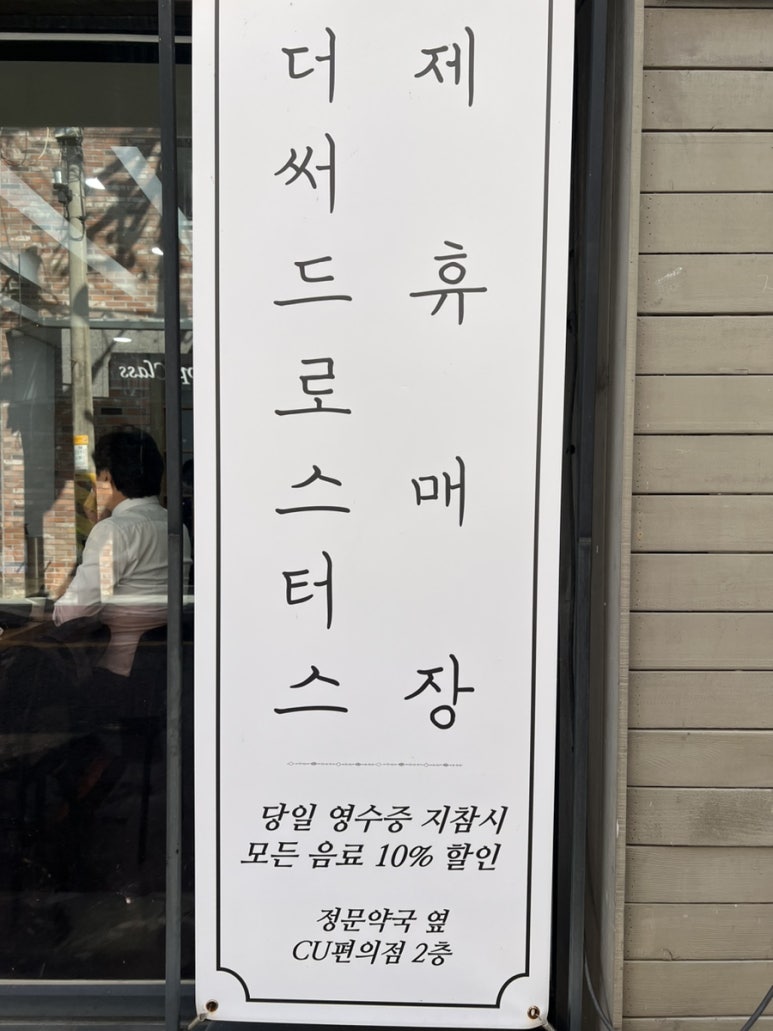 더써드로스터스
제휴매장
당일 영수증 지참시
모든 음료 10% 할인
정문약국 옆
CU편의점 2층
Class